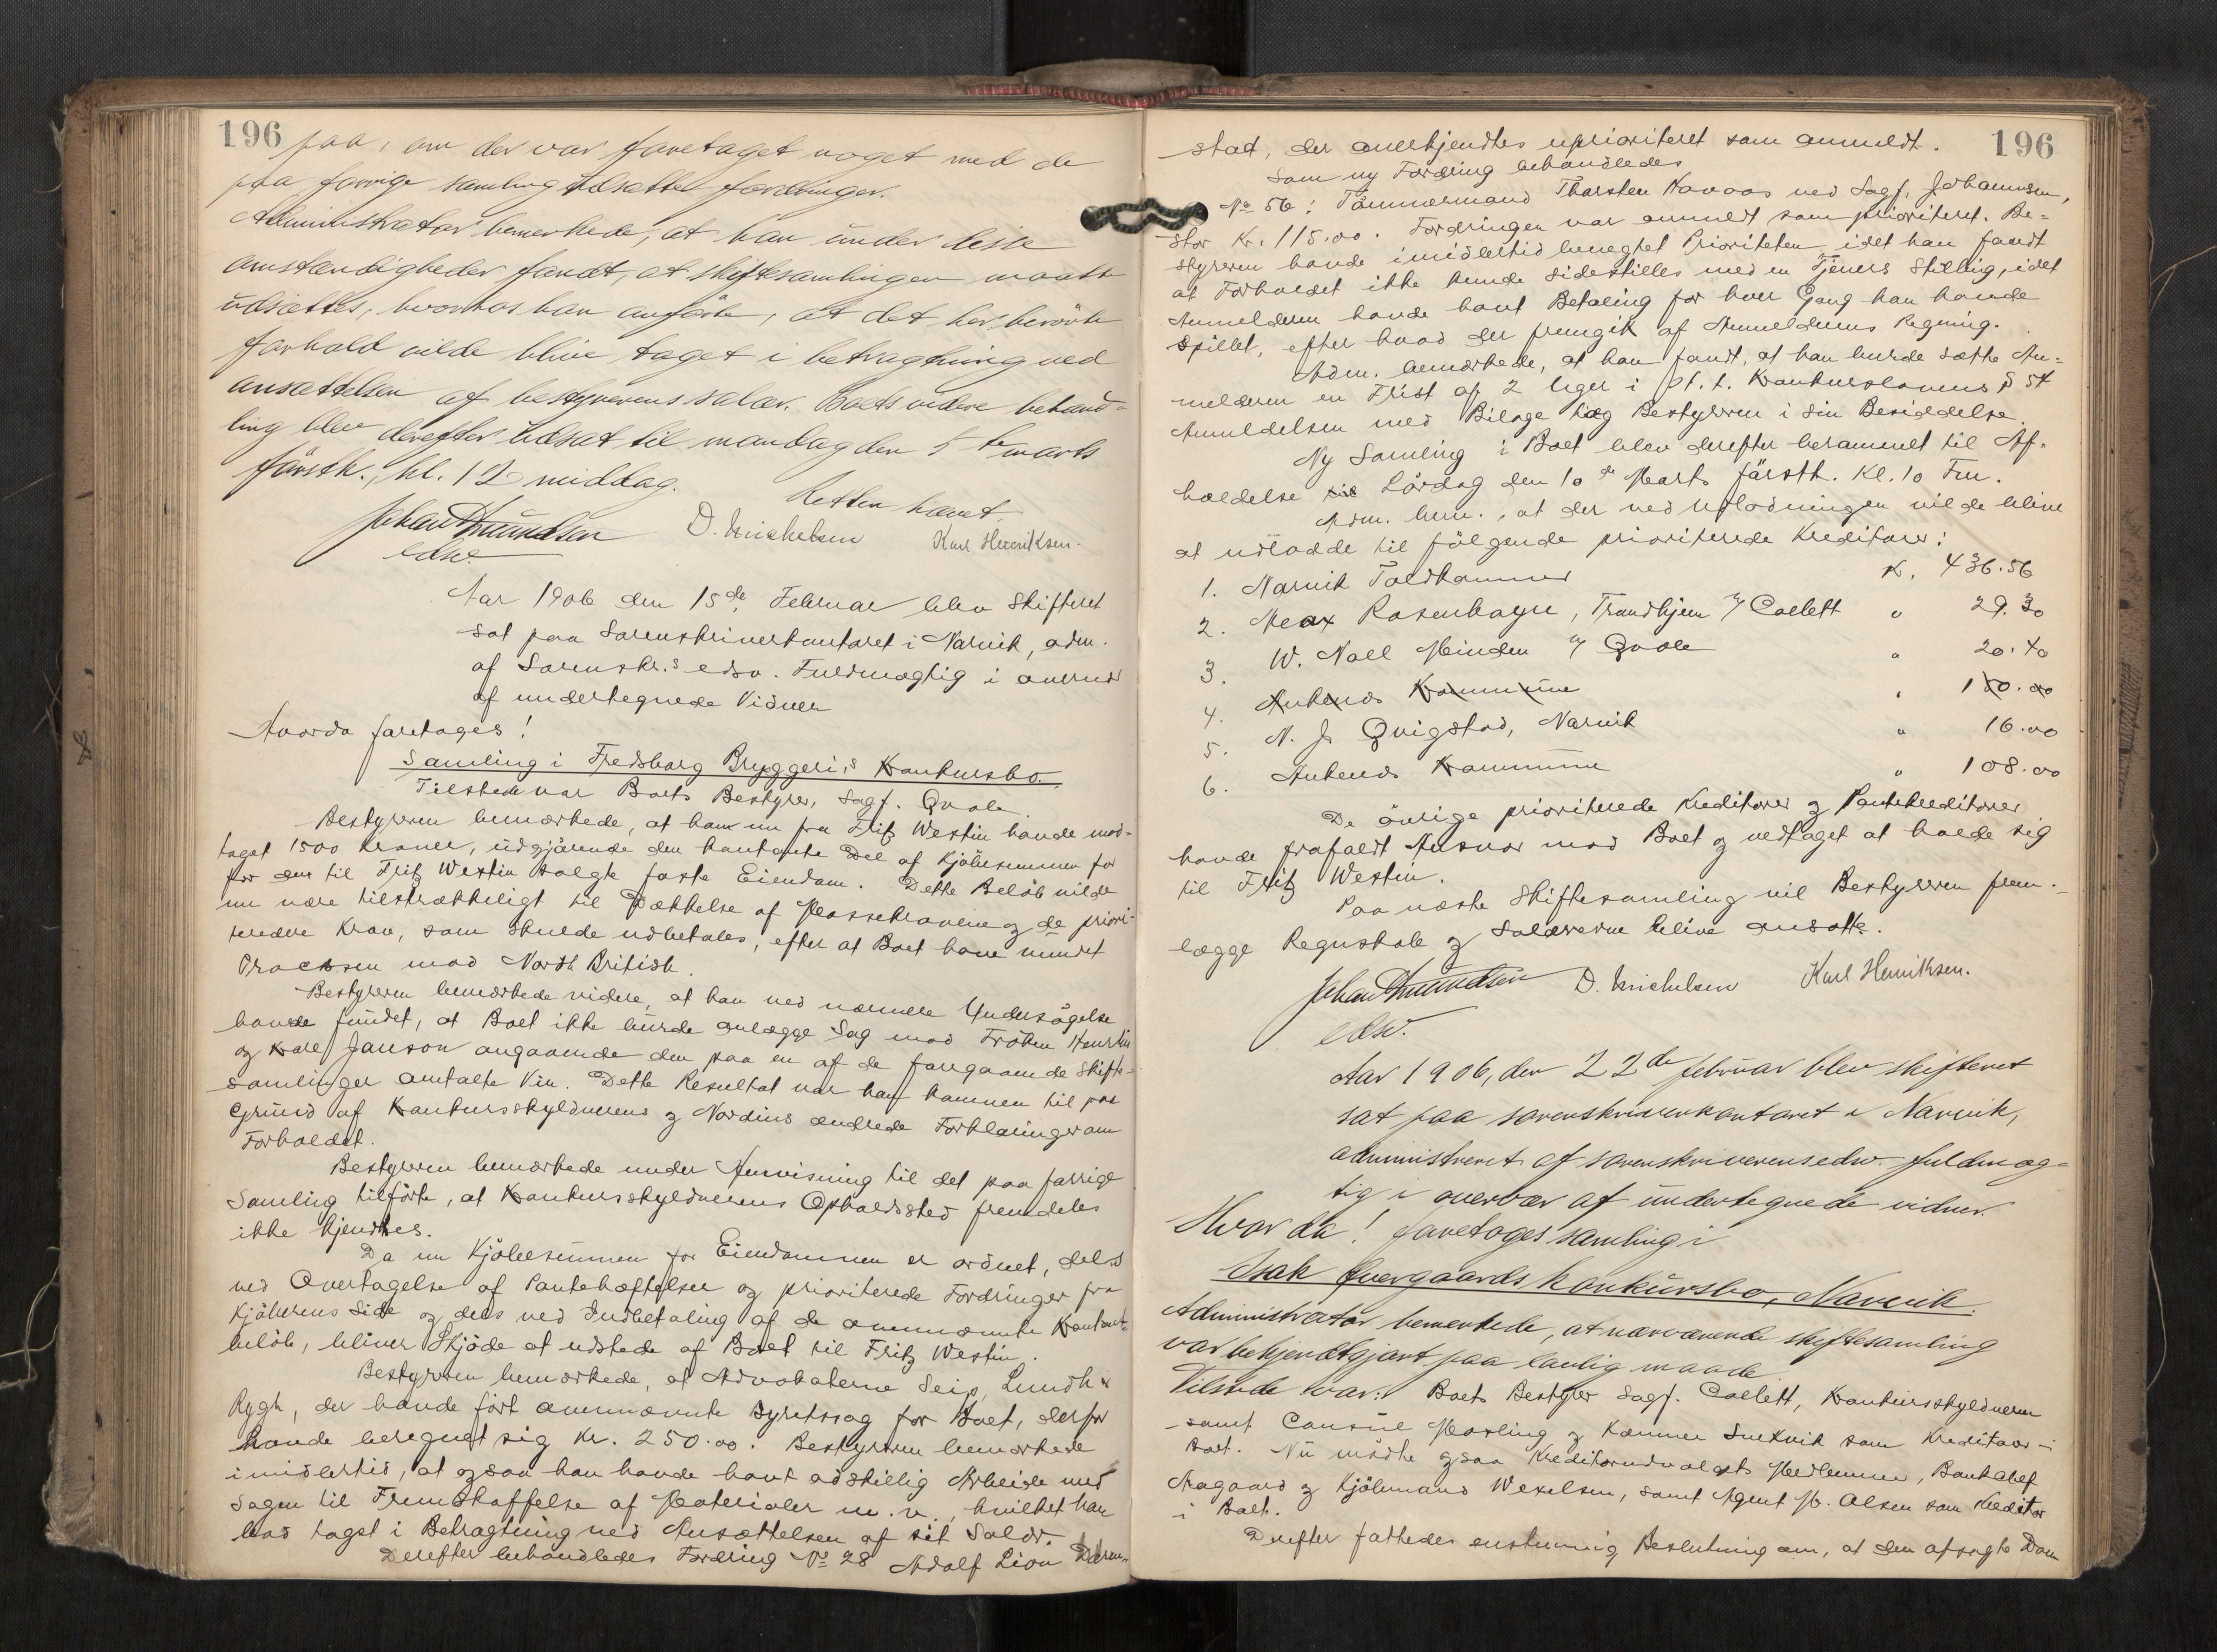 196
paa, om der var foretaget noget med de
paa forrige samling udsatte fordringer.
Administrator bemerkede, at han under disse
omstændigheder fandt, at skiftesamlingen maatte
udsættes, hvorhos han anførte, at det her berørte
forhold vilde blive taget i betragtning ved
ansættelsen af bestyrerens salær. Boets videre behand-
ling blev derefter udsat til mandag den 5te marts
førstk., kl. 12 middag.
Retten hævet.
Johan Amundsen D. Michelsen Karl Henriksen.
edsv.
Aar 1906 den 15de Februar blev Skifteret
sat paa Sorenskriverkontoret i Narvik, adm.
af Sorenskr.s edsv. Fuldmægtig i overvær
af undertegnede Vidner
Hvorda foretoges!
Samling i Fredsborg Bryggeri,s Konkursbo.
Tilstede var Boets Bestyrer, Sagf. Qvale.
Bestyreren bemærkede, at han nu fra Fritz Westin havde mod-
taget 1500 Kroner, udgjørende den kontante Del af Kjøbesummen for
for den til Fritz Westin solgte faste Eiendom. Dette Beløb vilde
nu være tilstrækkeligt til Dækkelse af Massekravene og de priori-
terede Krav, som skulde udbetales, efter at Boet have vundet
Processen mod North British.
Bestyreren bemærkede videre, at han ved nærmere Undersøgelse
havde fundet, at Boet ikke burde anlægge Sag mod Frøken
og Karl Janson angaaende den paa en af de foregaaende Skifte-
samlinger omtalte Vin. Dette Resultat var han kommen til paa
Grund af Konkursskyldnerens og Nordins ændrede Forklaringer om
Forholdet.
Bestyreren bemærkede under Henvisning til det paa forrige
Samling tilførte, at Konkursskyldnerens Opholdssted fremdeles
ikke kjendtes.
Da nu Kjøbesummen for Eiendommen er ordnet, dels
ved Overtagelse af Pantehæftelser og prioriterede Fordringer fra
Kjøberens Side og dels ved Indbetaling af de ovennævnte Kontant-
beløb, bliver Skjøde at udstede af Boet til Fritz Westin.
Bestyreren bemærkede, at Advokaterne Seip, Lundh &
Rygh, der havde ført ovennævnte Byretssag for Boet, derfor
havde beregnet sig Kr. 250.00. Bestyreren bemærkede
imidlertid, at ogsaa han havde havt adskillig Arbeide med
Sagen til Fremskaffelse af Materialer m. v., hvilket han
bad taget i Betragtning ved Ansættelsen af sit Salær.
Derefter behandledes Fordring No 28 Adolf Lion
196
stad, der anerkjendtes uprioriteret som anmeldt.
Som ny Fordring behandledes
No 56: Tømmermand Thorsten ved Sagf. Johannesen,
stor Kr. 115.00. Fordringen var anmeldt som prioriteret. Be-
styreren havde imidlertid benegtet Prioriteten, idet han fandt
at Forholdet ikke kunde sidestilles med en Tjeners Stilling, idet
Anmelderen havde havt Betaling for hver Gang han havde
spillet, efter hvad der fremgik af Anmelderens Regning.
Adm. bemærkede, at han fandt, at han burde sætte An-
melderen en Frist af 2 Uger i Flt. t. Konkurslovens § 54
Anmeldelsen med Bilage tog Bestyreren i sin Besiddelse.
Ny Samling i Boet blev derefter berammet til Af-
holdelse til Lørdag den 10de Marts førstk. Kl. 10 Fm.
Adm. bem., at der ved Udlodningen vilde blive
at udlodde til følgende prioriterede Kreditorer:
1. Narvik Toldkammer K. 436.56
2. Max Rosenhayn, Trondhjem v/ Collett " 29.30
3. W. Noll Minden v/ Qvale " 20.40
4. Ankenes Kommune " 180.00
5. N. J. Qvigstad, Narvik " 16.00
6. Ankenes Kommune " 108.00
De øvrige prioriterede Kreditorer og Pantekreditorer
havde frafaldt Ansvar mod Boet og vedtaget at holde sig
til Fritz Westin.
Paa næste Skiftesamling vil Bestyreren frem-
lægge Regnskab og Salærerne blive ansatte.
Johan Amundsen D. Michelsen Karl Henriksen.
edsv.
Aar 1906, den 22de februar blev skifteret
sat paa sorenskriverkontoret i Narvik,
administreret af sorenskriverens edsv. fuldmæg-
tig i overvær af undertegnede vidner.
Hvor da! foretoges samling i
Isak Overgaards konkursbo, Narvik.
Administrator bemerkede, at nærværende skiftesamling
var bekjendtgjort paa lovlig maade.
Tilstede var: Boets Bestyrer Sagf. Collett, Konkursskyldneren
samt Consul Mosling og som Kreditorer i
Boet. Nu mødte ogsaa Kreditorudvalgets Medlemmer, Bankchef
Aagaard og Kjøbmand Wexelsen, samt Agent M. Olsen som Kreditor
i Boet.
Derefter fattedes enstemmig Beslutning om, at den afsagte Dom